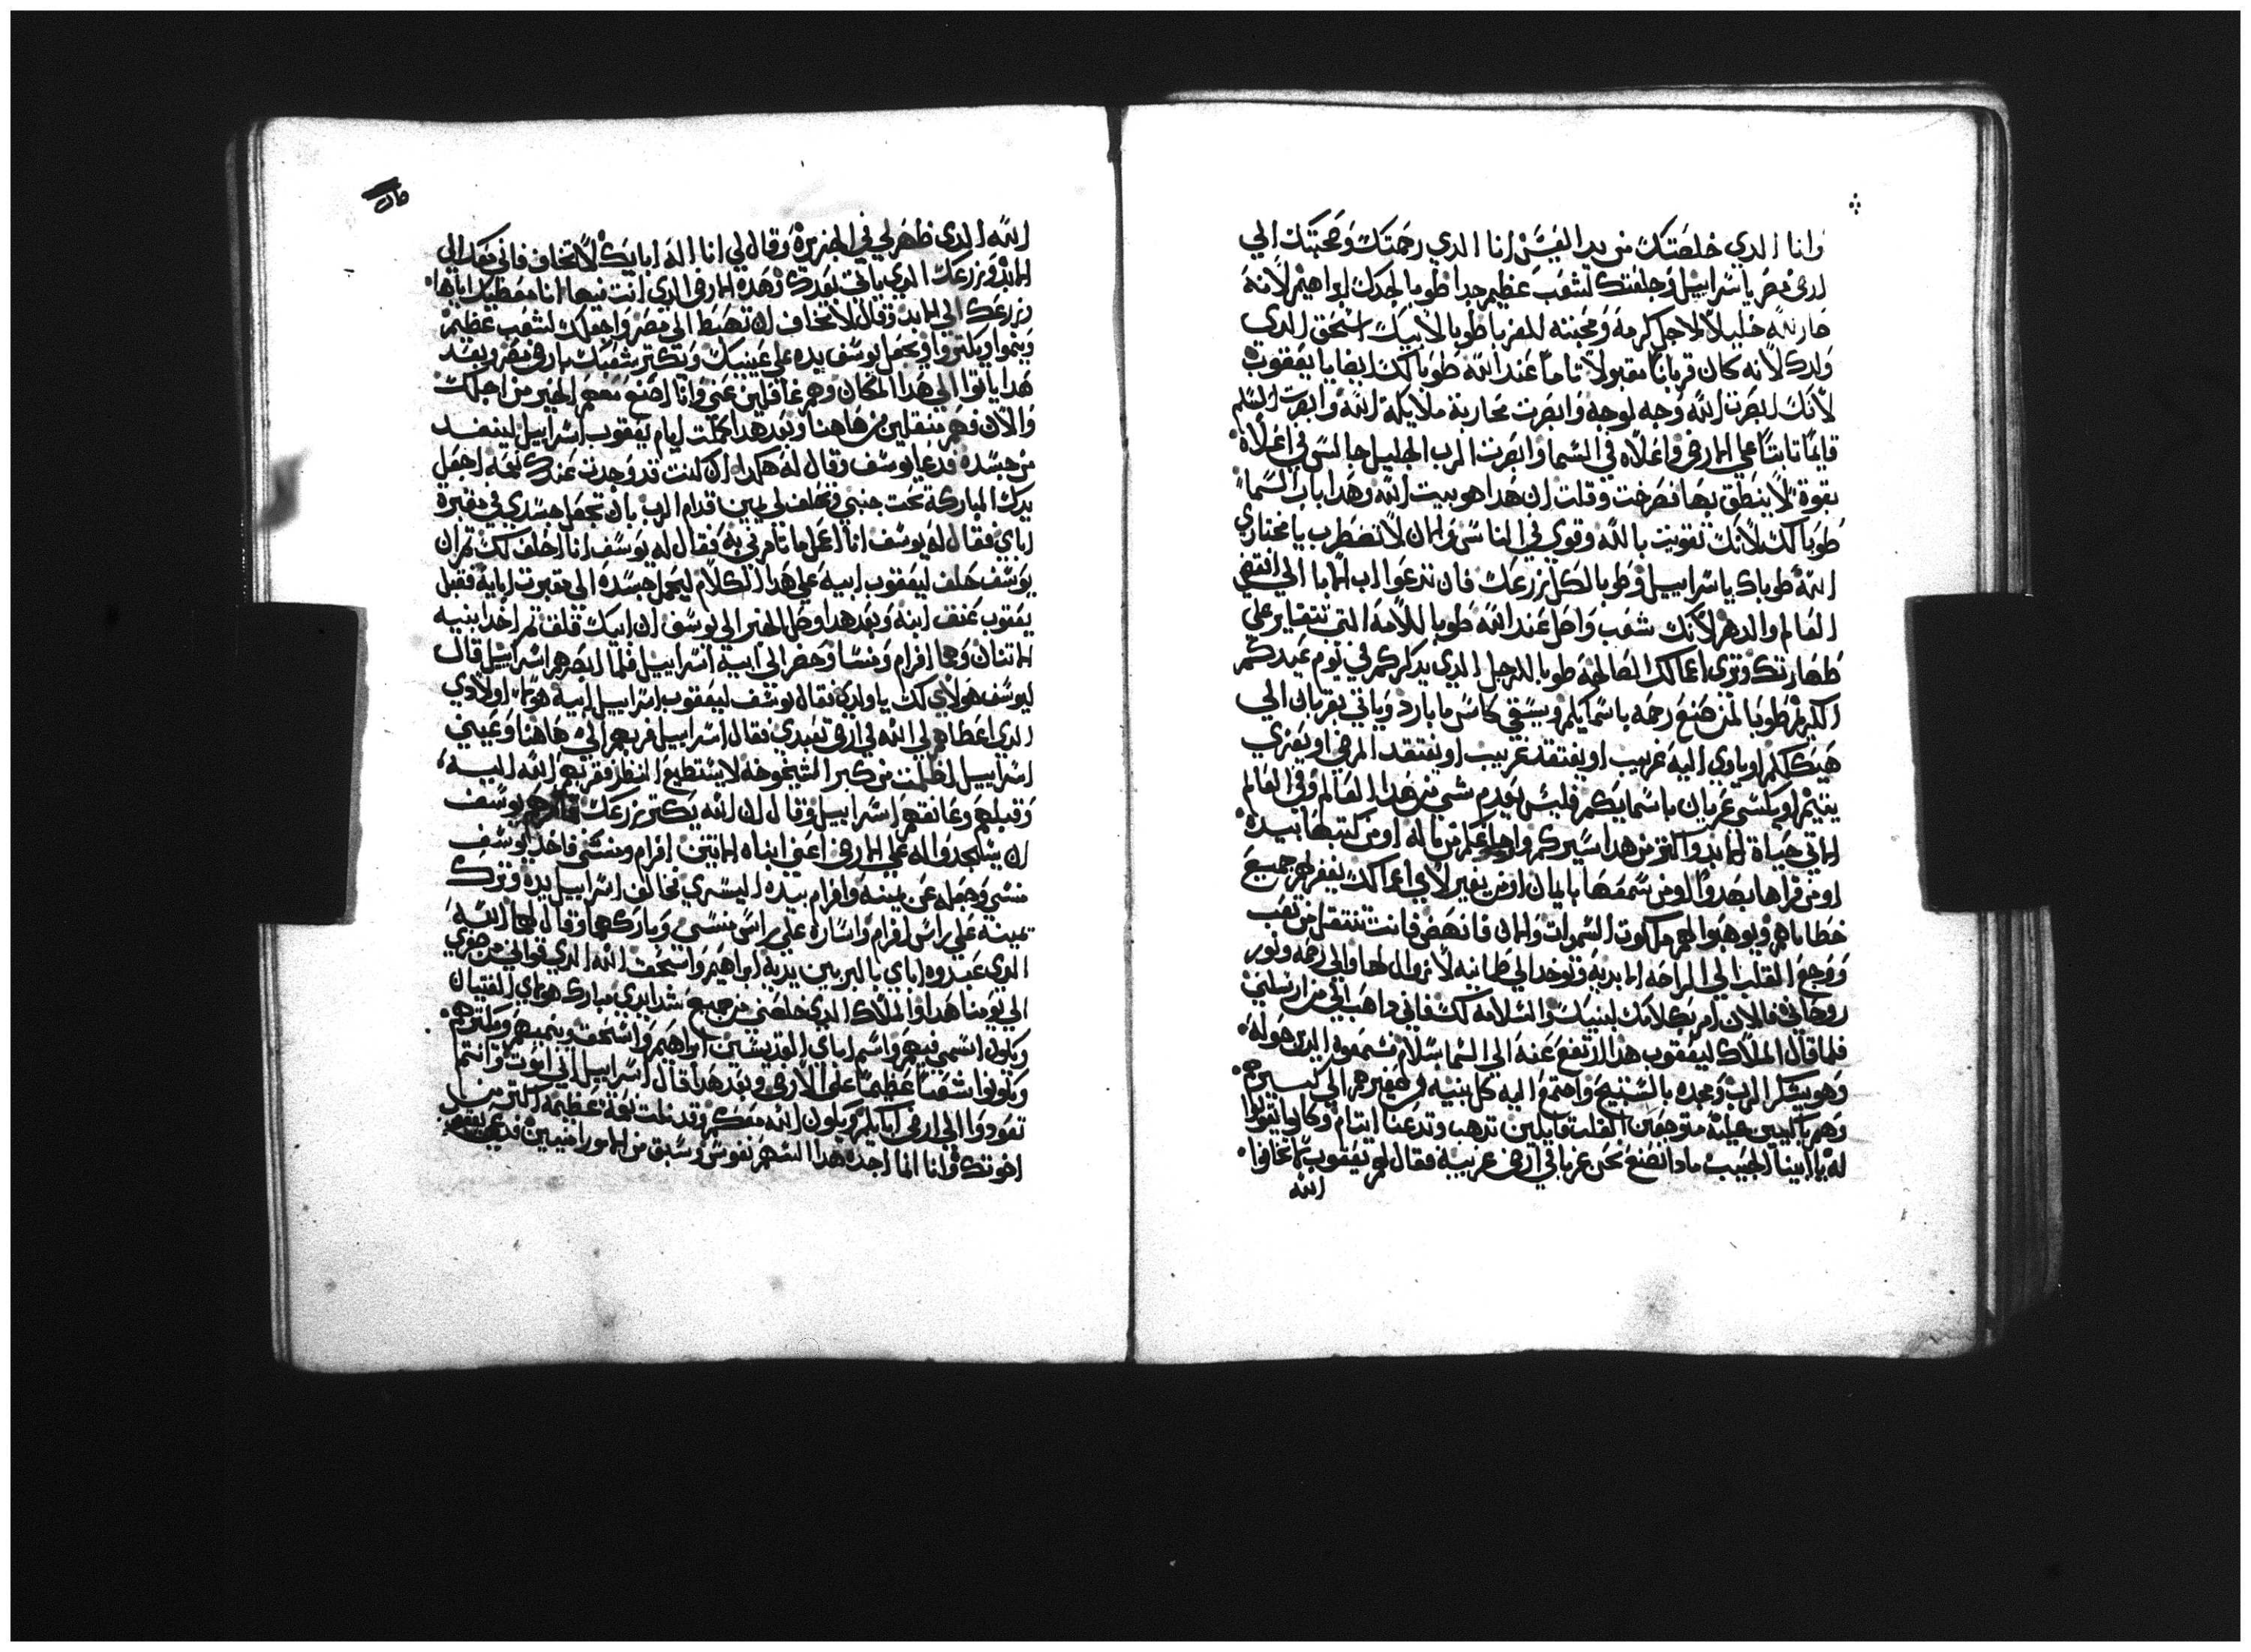 وانا الدي خلصتك من يد العيس انا الدي رحمتك وصحبتك الي
ارض مصر ياسراييل وجعلتك لشعب عظيم جدا طوبا لجدك ابراهيم لانه
صار لله خليلا لاجل كرمه ومحبته للغربا طوبا لابيك اسحق الدي
ولدك لانه كان قربانا مقبولا تاما عند الله طوبا لك ايضا يا يعقوب
لانك ابصرت الله وجه لوجه وابصرت محاربة ملايكة الله وابصرت السلم
قايما تابتا علي الارض واعلاه في السما وابصرت الرب الجليل جالس في اعلاه
بقوة لا ينطق بها فصرخت وقلت ان هدا هو بيت الله وهدا باب السما
طوبا لك لانك تقويت بالله وقوي في الناس والان لا تضطرب يا مختاري
الله طوباك ياسراييل وطوبا لكل زرعك فان تدعوا اب الابا الي انقضي
العالم والدهر لانك شعب واصل عند الله طوبا للامه التي تتغاير علي
طهارتك وتري اعمالك الصالحه طوبا للرجل الدي يدكركم في يوم عيدكم
الكريم طوبا لمن صنع رحمه باسمايكم ويسقي كاس ما بارد وياتي بقربان الي
هيكلكم او ياوي اليه غريب او يفتقد غريب او يفتقد المرضي او يعزي
يتيم او يكسي عريان باسمايكم فليس يعدم شي من هدا العالم وفي العالم
الاتي حياة الابد واكتر من هدا سيركم واعمالكم من ماله او من كتبها بيده
او من قراها بهدوا او من سمعها بايمان او من يغير لا في اعمالك يغفر لهم جميع
خطاياهم ويوهبوا لهم ملكوت السموات والان فانهض فانت تنتقل من تعب
ووجع القلب الي الراحه الابديه وتوخد الي طمانينه لا زوال لها والي رحمه ونور
روحاني فالان امر بكلامك لبنيك والسلامه لك فاني داهب الي من ارسلني
فلما قال الملاك ليعقوب هدا ارتفع عنه الي السما بسلام فسمعوه الدي حوله
وهو يشكر الرب ويمجده بالتسبيح واجتمع اليه كل بنيه من صغيرهم الي كبيرهم
وهم باكيين عليه متوجعين القلب قايلين تدهب وتدعنا ايتام وكانوا يقولوا
له يا ابينا الحبيب مادا نصنع نحن غربا في ارض غريبه فقال لهم يعقوب لا تخافوا
الله
الله الدي ظهر لي في الجزيرة وقال لي انا اله ابايك لا تخاف فاني معك الي
الابد وزرعك الدي ياتي بعدك وهده الارض الدي انت فيها انا معطيك اياها
وزرعك الي الابد وقال لا تخاف ان تهبط الي مصر واجعلك لشعب عظيم
وينموا ويكتروا ويجعل يوسف يده علي عينيك ويكتر شعبك بارض مصر وبعد
هدا ياتوا الي هدا المكان وهم غافلين عني وانا اصنع معهم الخير من اجلك
والان فهم منتقلين من هاهنا وبعد هدا كملت ايام يعقوب اسراييل لينفد
من جسده فدعا يوسف وقال له هكدا ان كنت قد وجدت عندك نعمه اجعل
يدك المباركه تحت جنبي وتحلف لي يمين قدام الرب بان تجعل جسدي في مقبرة
اباي فقال له يوسف انا اعمل ما تامرني به فقال له يوسف انا احلف لك تم ان
يوسف حلف ليعقوب ابيه علي هدا الكلام ليحمل جسده الي مقبرت ابايه فقبل
يعقوب عنق ابنه وبعد هدا وصل الخبر الي يوسف ان ابيك قلق تم اخد ابنيه
الاتنان وهما افرام ومنسا وحضر الي ابيه اسراييل فلما ابصرهم اسراييل قال
ليوسف هولاي لك ياولدي فقال يوسف ليعقوب اسراييل ابيه هولاي اولادي
الدي اعطاهم لي الله في ارض تعبدي فقال اسراييل قربهم الي هاهنا وعيني
اسراييل اظلمت من كبر الشيخوخه لا يستطيع النظر فقربهم الله اليه
وقبلهم وعانقهم اسراييل وقال ان الله يكتر زرعك يوسف
ان يسجدوا له علي الارض اعني ابناه الاتنين افرام ومنسي فاخد يوسف
منسي وجعله عن يمينه وافرام بيده اليسري فخالف اسراييل يده وترك
يمينه علي راس افرام ويساره علي راس منسي وباركهما وقال لهما الله
الدي عبدوه اباي بالبر بين يديه ابراهيم واسحق الله الدي قواني من صغري
الي يومنا هدا والملاك الدي خلصني من جميع شدايدي مبارك هولاي الفتيان
ويكون اسمي فيهم واسم اباي القديسين ابراهيم واسحق وينميهم ويكترهم
ويكونوا شعبا عظيما علي الارض وبعد هدا قال اسراييل اني اموت وانتم
تعودوا الي ارض ابايكم ويكون الله معكم وقد نلت نعمة عظيمه اكتر من
اخوتك وانا الما اخده هدا السهم نفوس وسبق من الاموراميين قد